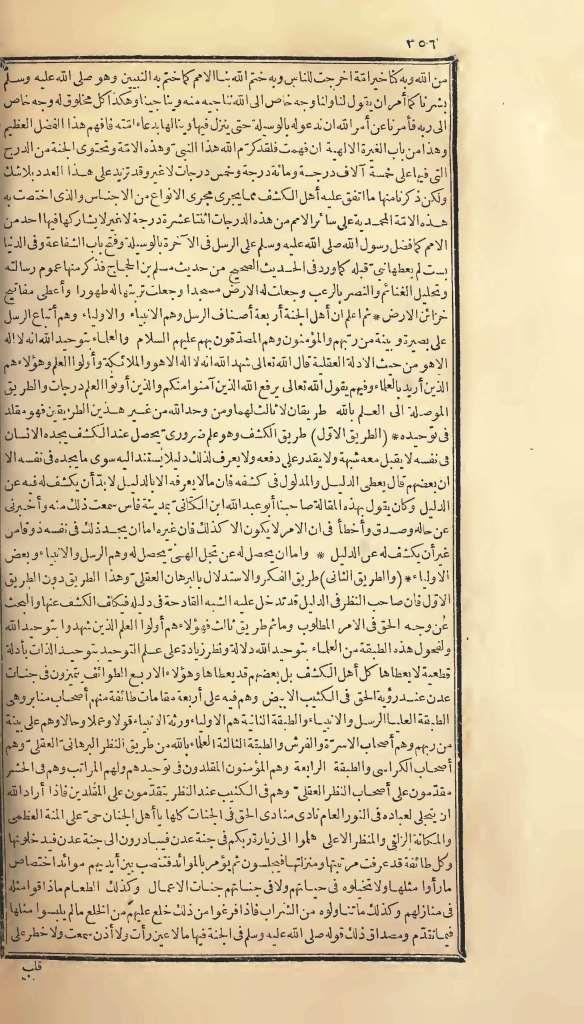 ٣٥٦
من الله وبه كنا خير امة اخرجت للناس وبه ختم الله بنا الامم كما ختم به النبيين وهو صلى الله عليه وسلم
بشر كما أمر ان يقول لنا ولنا وجه خاص الى الله نناجيه منه ويناجينا وهكذا كل مخلوق له وجه خاص
الى ربه فأمرنا عن أمر الله ان ندعو له بالوسيلة حتى ينزل فيها وينالها بدعاء امته فافهم هذا الفضل العظيم
وهذا من باب الغيرة الالهية ان فهمت فلقد كرم الله هذا النبي وهذه الامة وتحتوى الجنة من الدرج
التى فيها على خمسة آلاف درجة ومائة درجة وخمس درجات لا غير وقد تزيد على هذا العدد بلا شك
ولكن ذكرنا منها ما اتفق عليه أهل الكشف مما يجرى مجرى الانواع من الاجناس والذى اختصت به
هذه الامة المحمدية على سائر الامم من هذه الدرجات اثنتا عشرة درجة لا غير لا يشاركها فيها احد من
الامم كما فضل رسول الله صلى الله عليه وسلم على الرسل فى الآخرة بالوسيلة وفتح باب الشفاعة وفى الدنيا
بست لم يعطها نبي قبله كما ورد فى الحديث الصحيح من حديث مسلم بن الحجاج فذكر منها عموم رسالته
وتحليل الغنائم والنصر بالرعب وجعلت له الارض مسجدا وجعلت تربتها له طهورا وأعطى مفاتيح
خزائن الارض * ثم اعلم ان أهل الجنة أربعة أصناف الرسل وهم الانبياء والاولياء وهم أتباع الرسل
على بصيرة وبينة من ربهم والمؤمنون وهم المصدقون بهم عليهم السلام والعلماء بتوحيد الله انه لا اله
الا هو من حيث الادلة العقلية قال الله تعالى شهد الله انه لا اله الا هو والملائكة وأولوا العلم وهؤلاء هم
الذين أريد بالعلماء وفيهم يقول الله تعالى يرفع الله الذين آمنوا منكم والذين أوتوا العلم درجات والطريق
الموصلة الى العلم بالله طريقان لا ثالث لهما ومن وحد الله من غير هذين الطريقين فهو مقلد
فى توحيده * (الطريق الاول) طريق الكشف وهو علم ضرورى يحصل عند الكشف يجده الانسان
فى نفسه لا يقبل معه شبهة ولا يقدر على دفعه ولا يعرف لذلك دليلا يستند اليه سوى ما يجده فى نفسه الا
ان بعضهم قال يعطى الدليل والمدلول فى كشفه فان ما لا يعرف الا بالدليل لا بد أن يكشف له فيه عن
الدليل وكان يقول بهذه المقالة صاحبنا أبو عبد الله ابن الكتانى بمدينة فاس سمعت ذلك منه وأخبرنى
عن حاله وصدق وأخطأ فى ان الامر لا يكون الا كذلك فان غيره اما ان يجد ذلك فى نفسه ذوقا من
غير أن يكشف له عن الدليل * واما ان يحصل له عن تجل الهى يحصل له وهم الرسل والانبياء وبعض
الاولياء * (والطريق الثانى) طريق الفكر والاستدلال بالبرهان العقلى وهذا الطريق دون الطريق
الاول فان صاحب النظر فى الدليل قد تدخل عليه الشبه القادحة فى دليله فيتكلف الكشف عنها والبحث
عن وجه الحق فى الامر المطلوب وما ثم طريق ثالث فهؤلاء هم أولوا العلم الذين شهدوا بتوحيد الله
ولفحول هذه الطبقة من العلماء بتوحيد الله دلالة ونظر زيادة على علم التوحيد بتوحيد الذات بأدلة
قطعية لا يعطاها كل أهل الكشف بل بعضهم قد يعطاها وهؤلاء الاربع الطوائف يتميزون فى جنات
عدن عند رؤية الحق فى الكثيب الابيض وهم فيه على أربعة مقامات طائفة منهم أصحاب منابر وهى
الطبقة العليا الرسل والانبياء والطبقة الثانية هم الاولياء ورثة الانبياء قولا وعملا وحالا وهم على بينة
من ربهم وهم أصحاب الاسرة والفرش والطبقة الثالثة العلماء بالله من طريق النظر البرهانى العقلى وهم
أصحاب الكراسى والطبقة الرابعة وهم المؤمنون المقلدون فى توحيدهم ولهم المراتب وهم فى الحشر
مقدمون على أصحاب النظر العقلى وهم فى الكثيب عند النظر يتقدمون على المقلدين فاذا أراد الله
ان يتجلى لعباده فى الزور العام نادى منادى الحق فى الجنات كلها يا أهل الجنان حى على المنة العظمى
والمكانة الزلفى والمنظر الاعلى هلموا الى زيارة ربكم فى جنة عدن فيبادرون الى جنة عدن فيدخلونها
وكل طائفة قد عرفت مرتبتها ومنزلتها فيجلسون ثم يؤمر بالموائد فتنصب بين أيديهم موائد اختصاص
ما رأوا مثلها ولا تخيلوه فى حياتهم ولا فى جناتهم جنات الاعمال وكذلك الطعام ما ذاقوا مثله
فى منازلهم وكذلك ما تناولوه من الشراب فاذا فرغوا من ذلك خلع عليهم من الخلع ما لم يلبسوا مثلها
فيما تقدم ومصداق ذلك قوله صلى الله عليه وسلم فى الجنة فيها ما لا عين رأت ولا أذن سمعت ولا خطر على
قلب